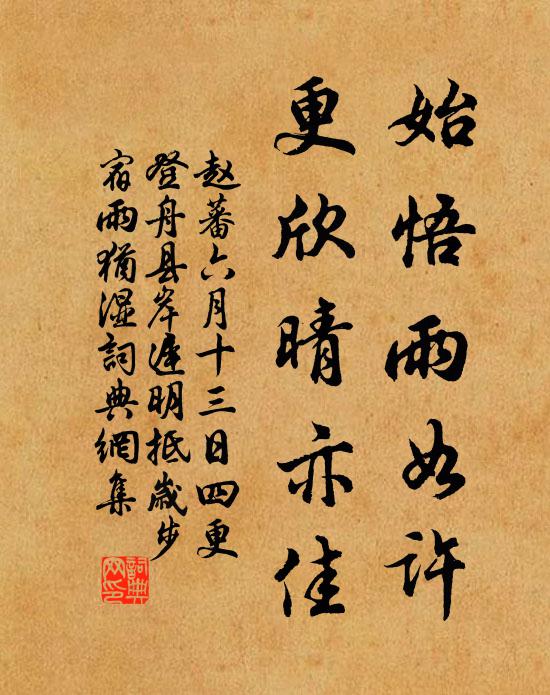 始悟雨如许
更欣晴亦佳
赵蕃六月十三日四更
登舟县岸遲明抵歳步
宿雨猶濕詞典網集
詞典网印